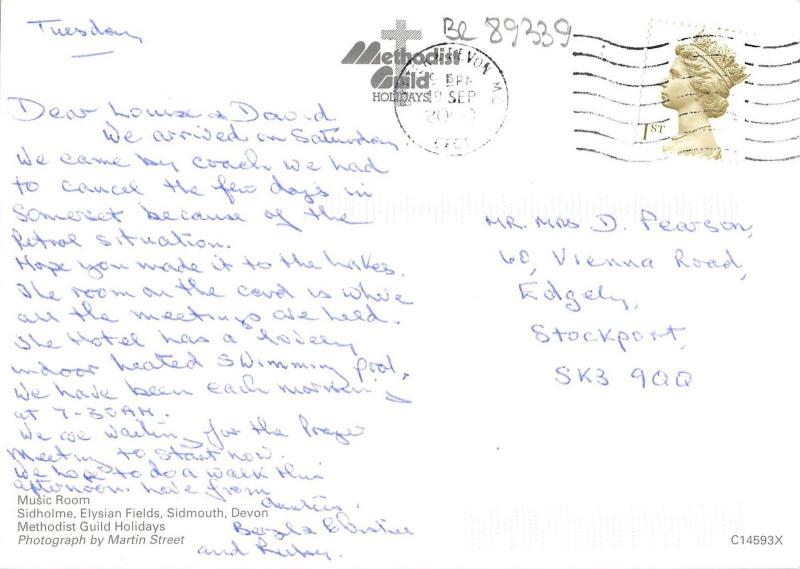 Tuesday
Be 89339
Methodist
Guild
HOLIDAYS
DEVON
19 SEP
1ST
Dear Louise & David
We arrived on Saturday
We came by coach we had
to cancel the few days in
Somerset because of the
Petrol situation.
Hope you made it to the Lakes.
The room on the card is where
all the meetings are held.
The Hotel has a lovely
indoor heated swimming pool,
We have been each morning
at 7-30AM.
We are waiting for the Prayer
Meeting to start now.
We hope to do a walk this
afternoon. Love from
and
Mr. Mrs D. Pearson,
60, Vienna Road,
Edgely,
Stockport,
SK3 9QQ
Music Room
Sidholme, Elysian Fields, Sidmouth, Devon
Methodist Guild Holidays
Photograph by Martin Street
C14593X